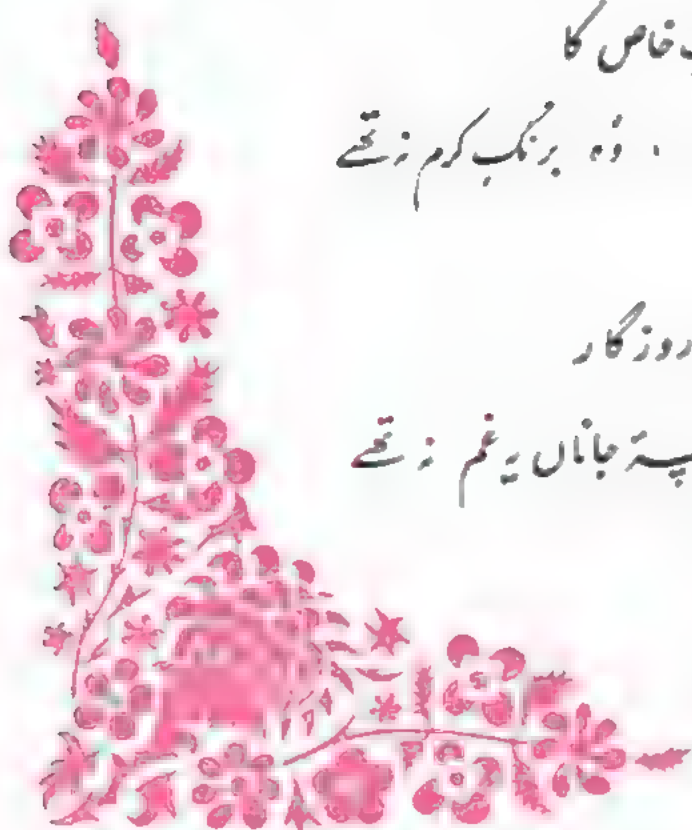 خاص کا
، وُہ برنگِ کرم نہ تھے
روزگار
جاناں یہ غم نہ تھے